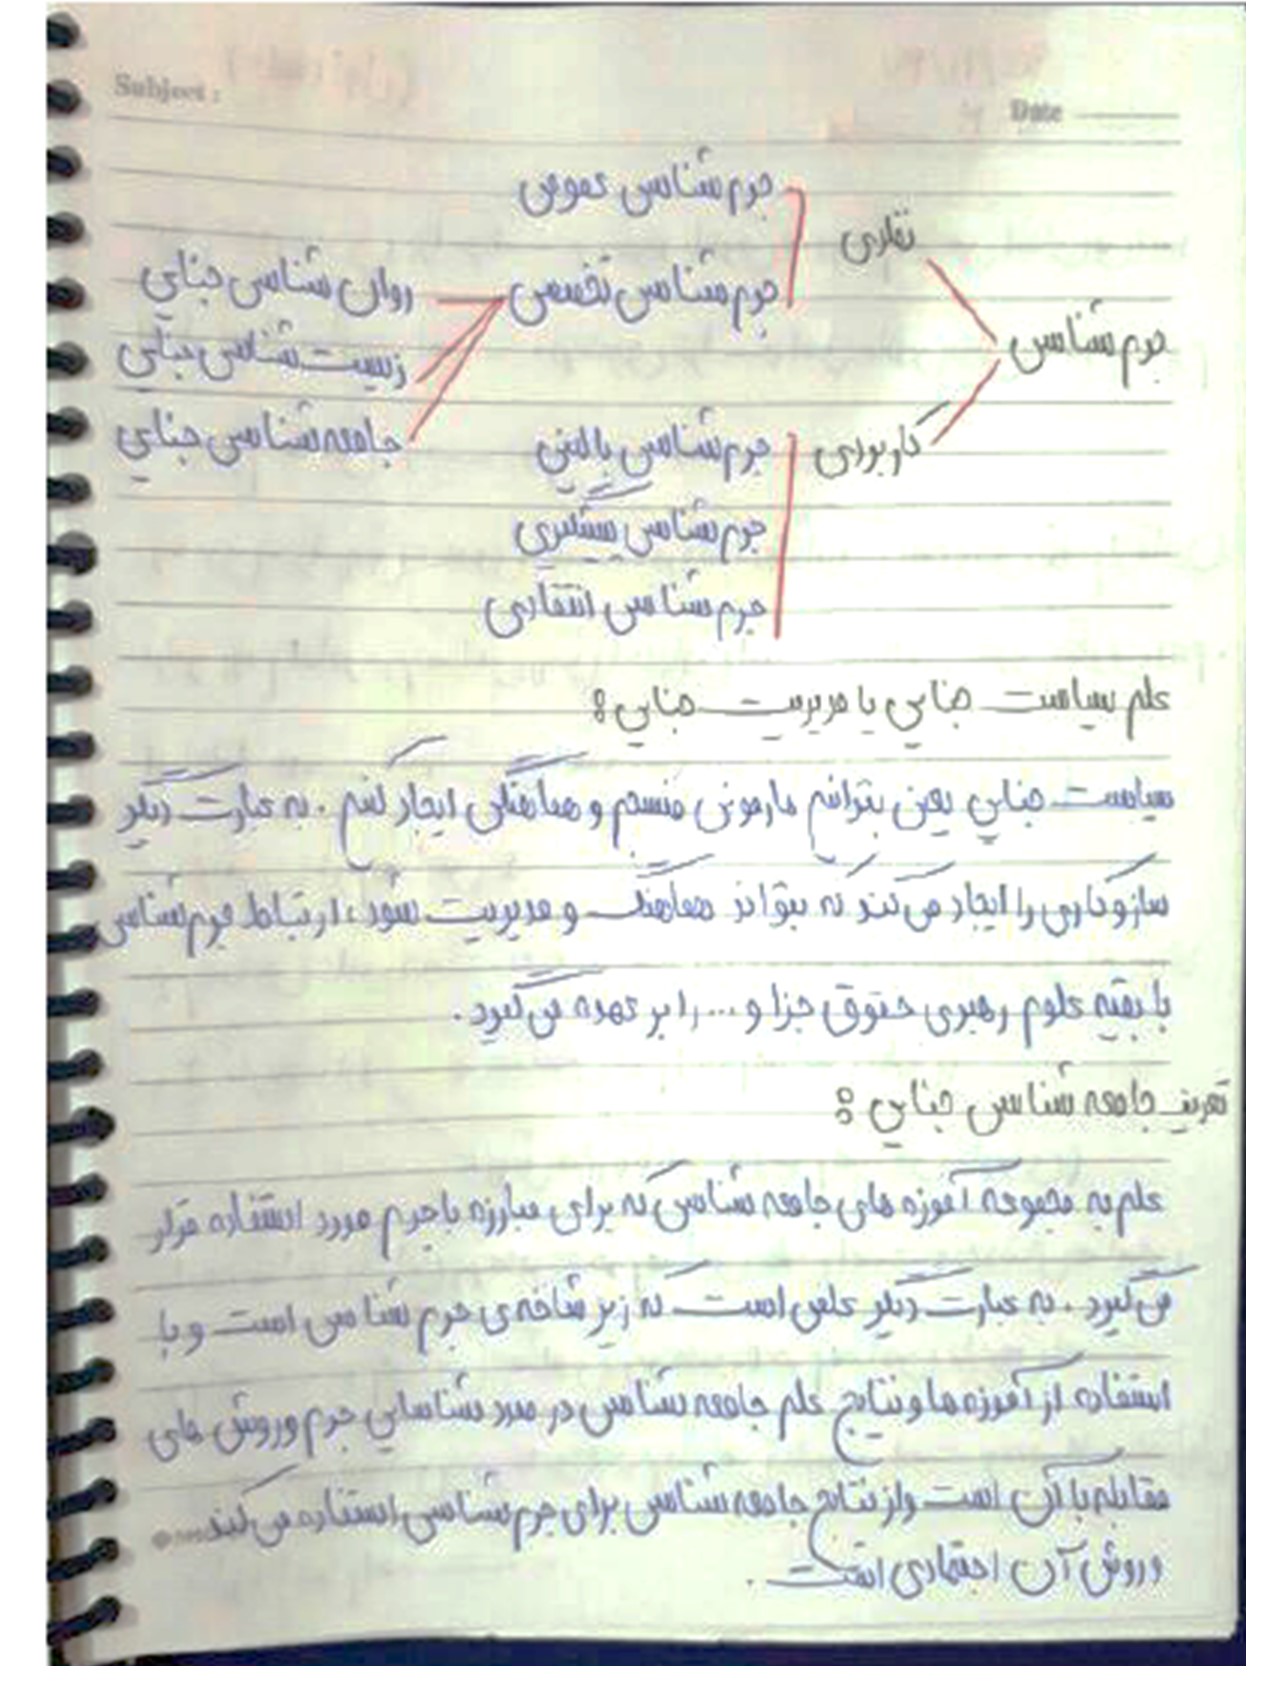 Subject :
Date
جرم شناسی عمومی
نظری
روان شناسی جنایی
جرم شناسی تخصصی
زیست شناسی جنایی
جرم شناسی
جامعه شناسی جنایی
جرم شناسی بالینی
کاربردی
جرم شناسی پیشگیری
جرم شناسی انتقادی
علم سیاست جنایی یا مدیریت جنایی :
سیاست جنایی یعنی بتوانیم هارمونی منسجم و هماهنگی ایجاد کنیم . به عبارت دیگر
سازوکاری را ایجاد می کند که بتواند هماهنگ و مدیریت شود ، ارتباط جرم شناسی
با بقیه علوم رهبری حقوق جزا و ... را بر عهده می گیرد .
تعریف جامعه شناسی جنایی :
علم به مجموعه آموزه های جامعه شناسی که برای مبارزه با جرم مورد استفاده قرار
می گیرد . به عبارت دیگر علمی است که زیر شاخه ی جرم شناسی است و با
استفاده از آموزه ها و نتایج علم جامعه شناسی در صدد شناسایی جرم و روش های
مقابله با آن است و از نتایج جامعه شناسی برای جرم شناسی استفاده می کند
و روش آن اجتماعی است .